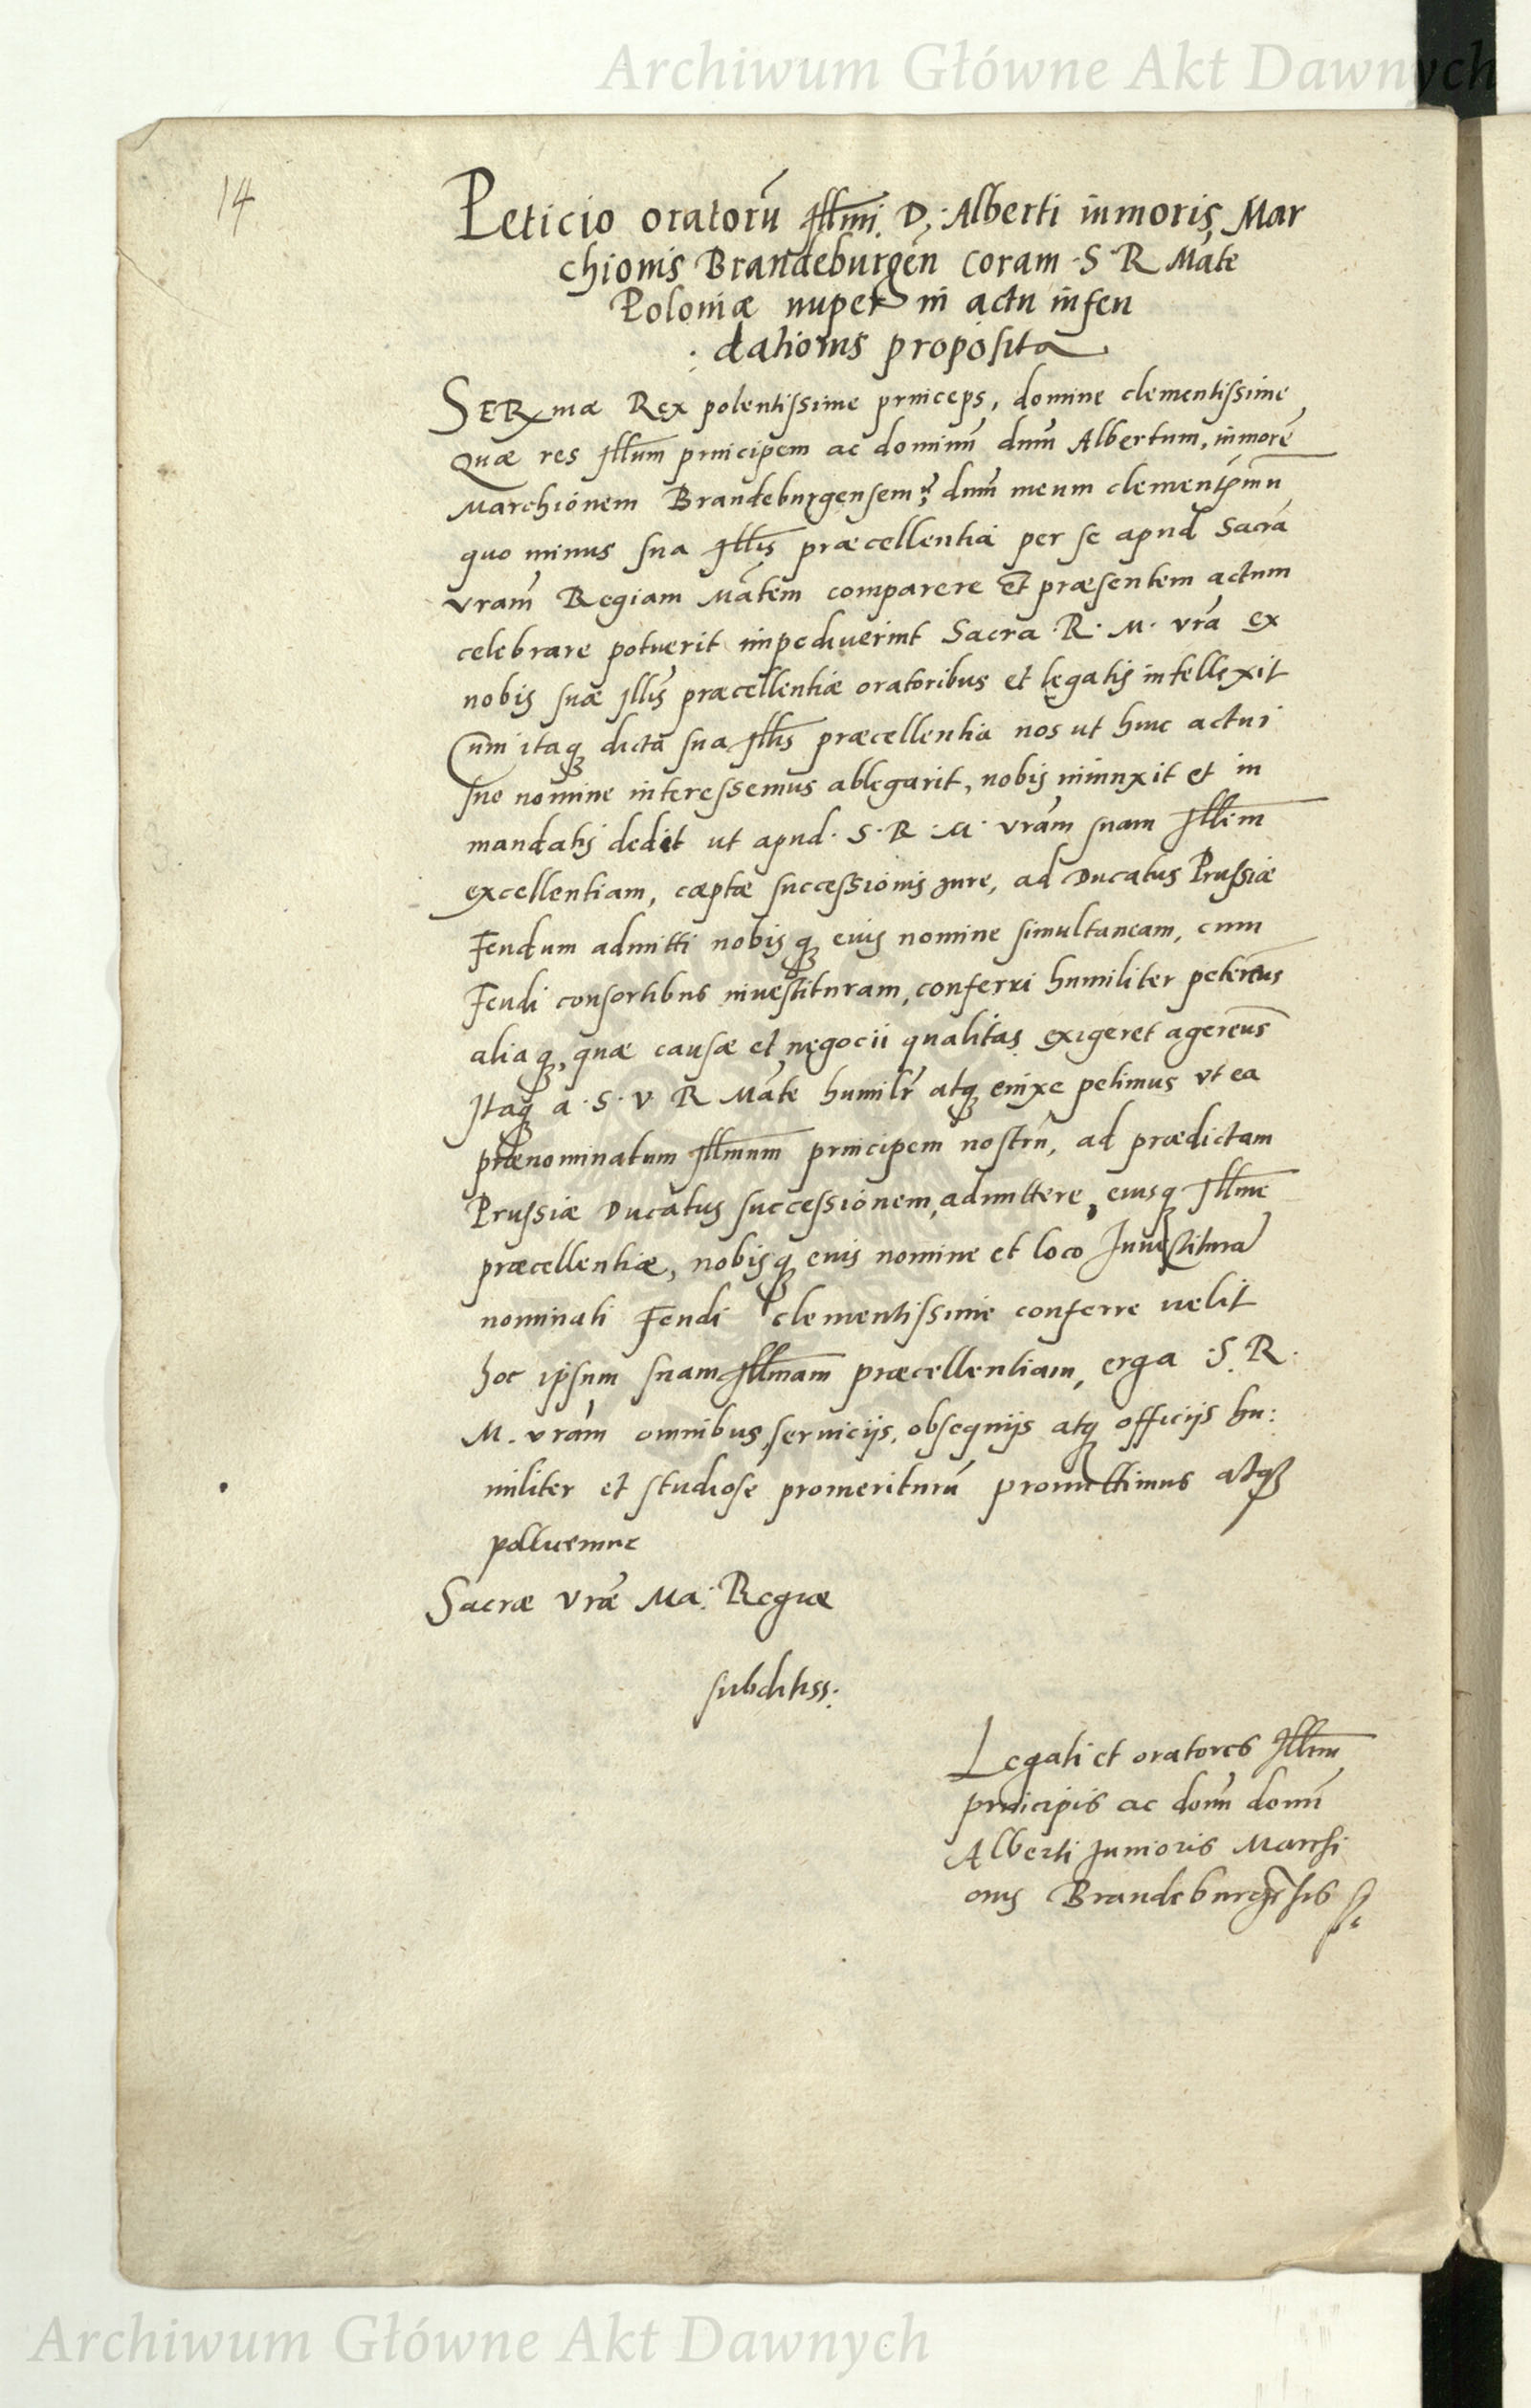 Archiwum Główne Akt Dawnych
14
Peticio oratorū Illmi D. Alberti iunioris Mar
chionis Brandeburgen̄ coram S R Māte
Poloniæ nuper in actu infeu
dationis proposita
SERmæ Rex potentissime princeps, domine clementissime
Quæ res Illum̄ principem ac dominū dnm̄ Albertum, iuniorē
Marchionem Brandeburgensem dnm̄ meum
quo minus sua Illis̄ præcellentia per se apud Sacrā
vrām Regiam Mātem comparere et præsentem actum
celebrare potuerit impediuerint Sacra R. M. vrā ex
nobis suæ Illis̄ præcellentiæ oratoribus et legatis intellexit
Cum itaq dicta sua Illis̄ præcellentia nos ut huic actui
suo nomine interessemus ablegarit, nobis iniunxit et in
mandatis dedit ut apud S. R. M. vrām suam Illem̄
excellentiam, cæptæ successionis iure, ad Ducatus Prussiæ
Feudum admitti nobisq eius nomine simultaneam, cum
Feudi consortibus inuestituram, conferri humiliter peterem̄us
aliaq, quæ causæ et negocii qualitas exigeret agerem̄us
Itaq a S. V. R Māte humilr̄ atq enixe petimus vt ea
prænominatum Illmum̄ principem nostrū, ad prædictam
Prussiæ Ducatus successionem, admittere, eiusq Illmē
præcellentiæ, nobisq eius nomine et loco Inuestiturā
nominati Feudi clementissime conferre uelit
hoc ipsum suam Illmam̄ præcellentiam, erga S. R.
M. vrām omnibus, seruicijs, obsequijs atq officijs hu:
militer et studiose promeriturū promittimus atq
pollicemur
Sacræ vrǣ Ma: Regiæ
subditiss:
Legati et oratores Illmī
principis ac domī domī
Alberti Junioris Marchi
onis Brandeburgēsis
Archiwum Główne Akt Dawnych